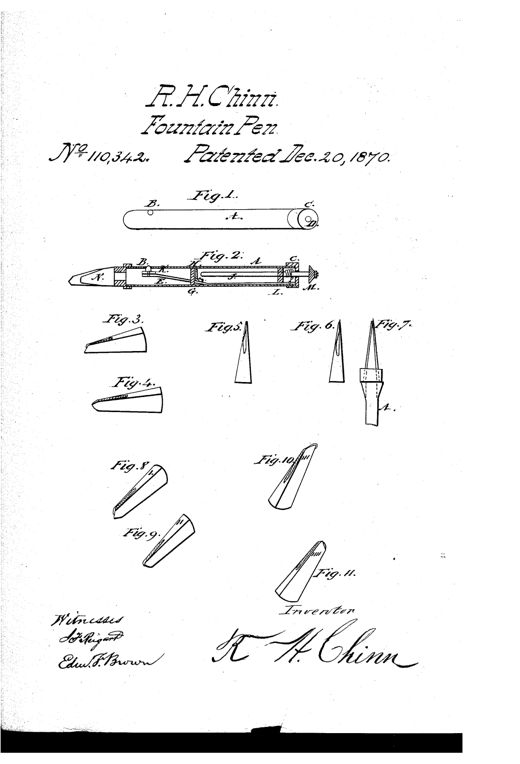 R. H. Chinn.
Fountain Pen.
No. 110,342. Patented Dec. 20, 1870.
Fig. 1.
B. C.
A.
D.
Fig. 2.
B. A. C.
N. K.
E. M.
G. L.
Fig. 3.
Fig. 5. Fig. 6. Fig. 7.
Fig. 4.
A.
Fig. 8
Fig. 10.
Fig. 9.
Fig. 11.
Inventor
Witnesses
R. H. Chinn
Edm. F. Brown